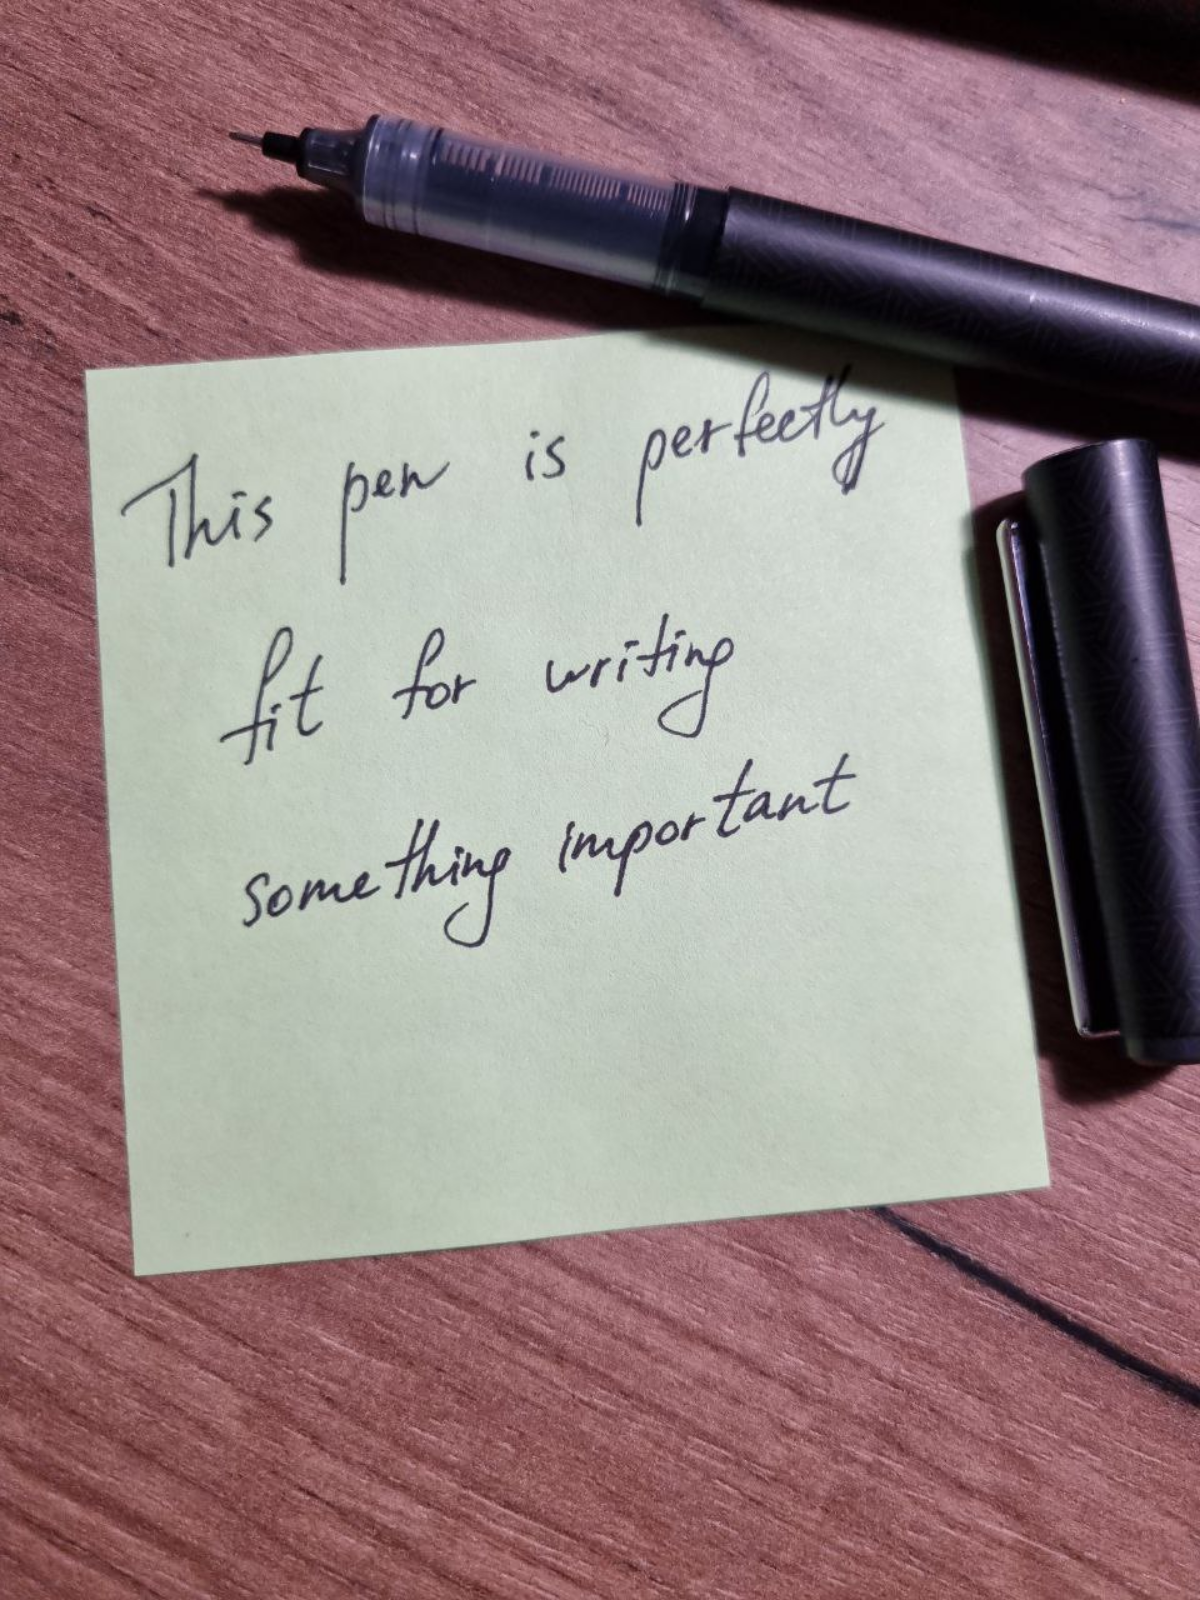 This pen is perfectly
fit for writing
something important